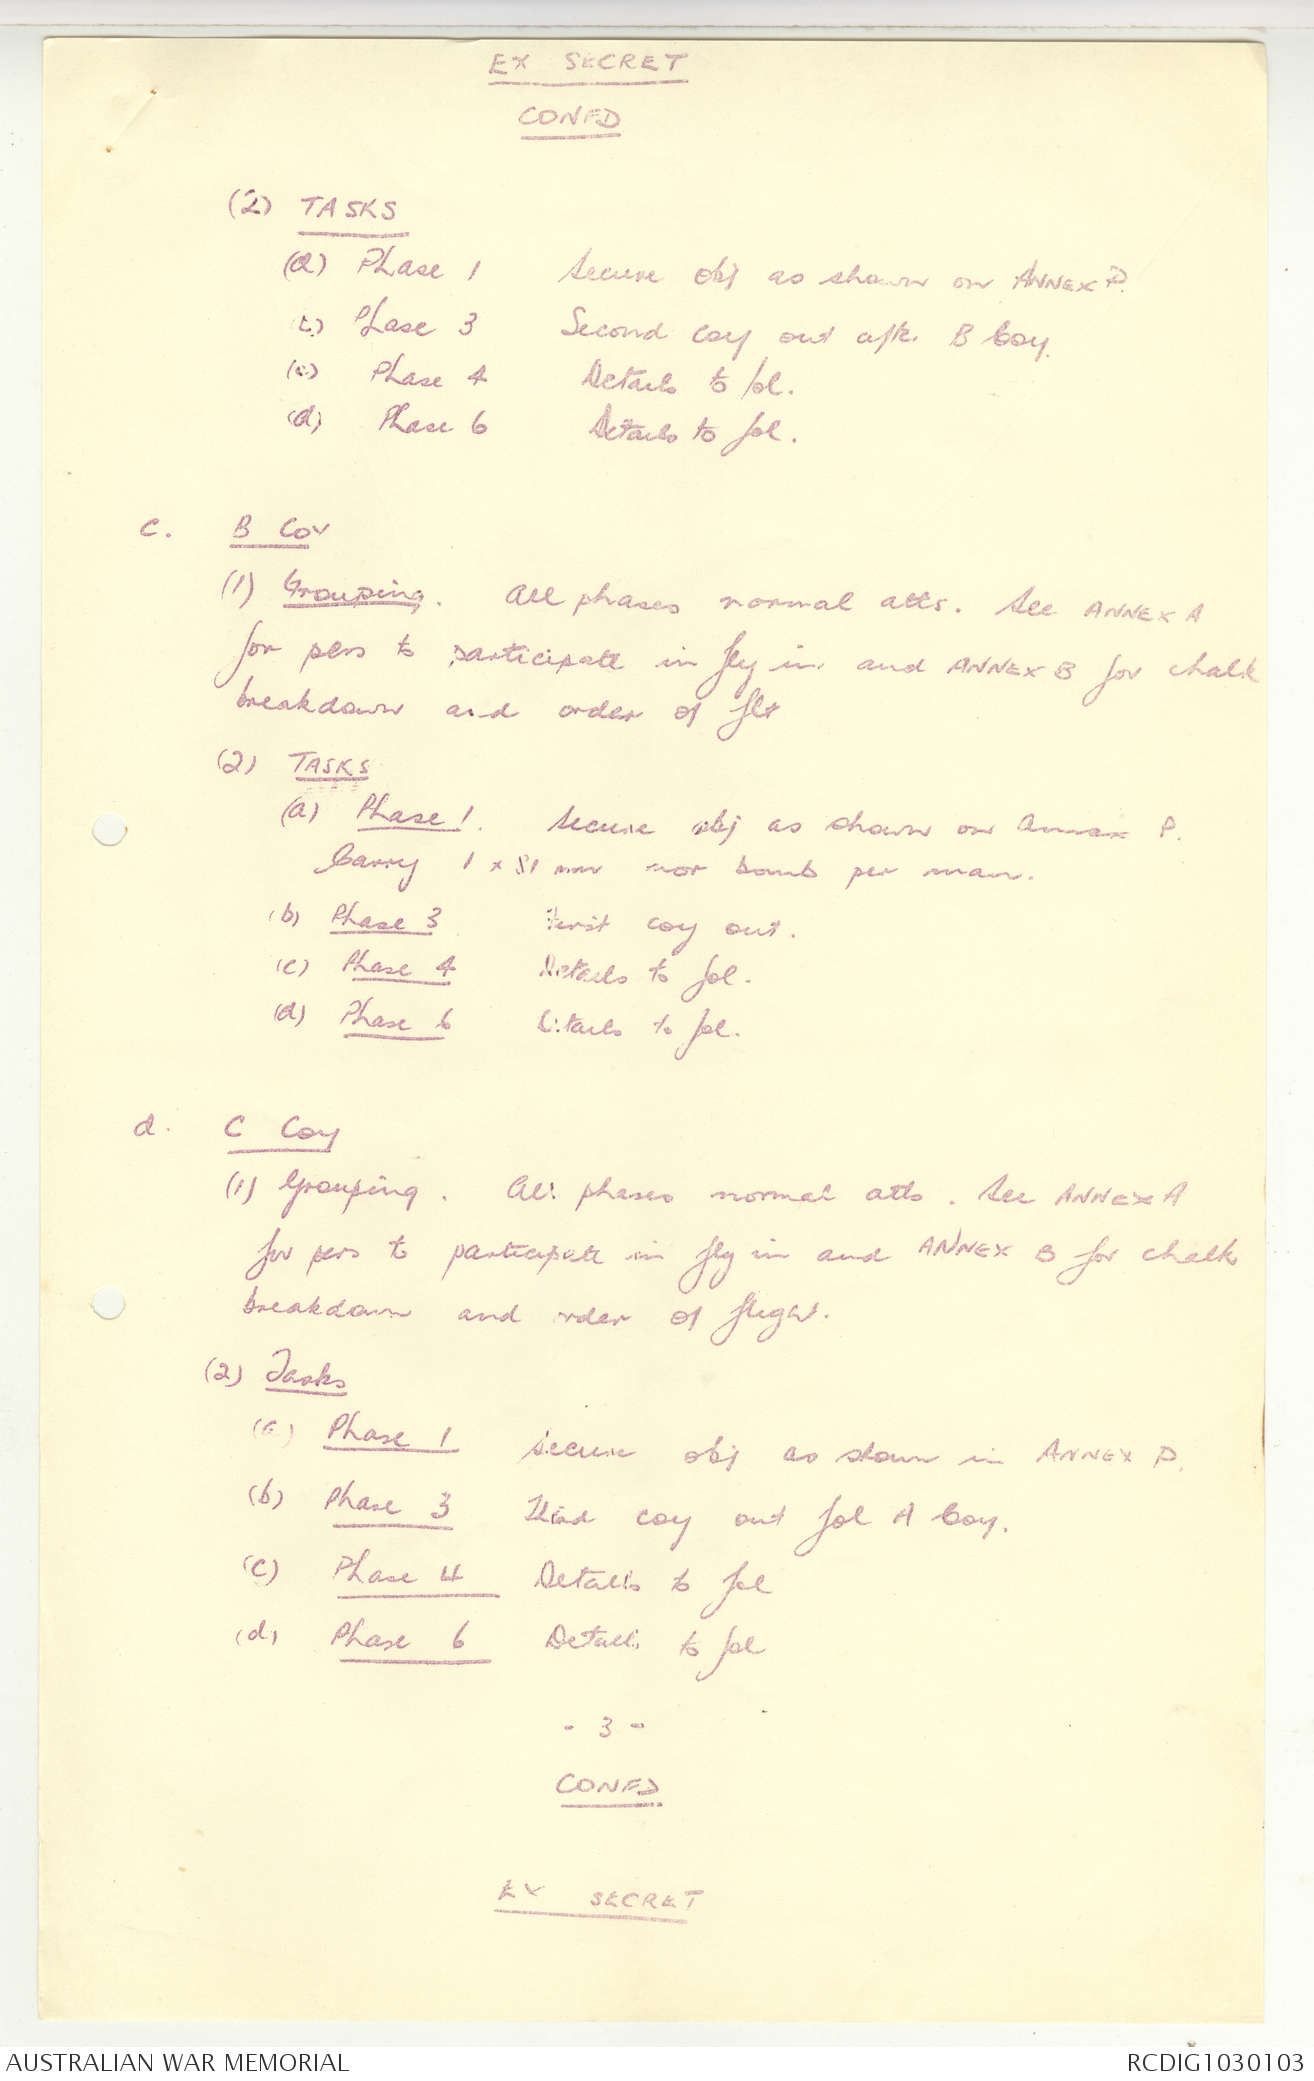 EX SECRET
CONFD
(2) TASKS
(a) Phase 1 Secure obj as shown on ANNEX P.
(b) Phase 3 Second coy out after B Coy.
(c) Phase 4 Details to fol.
(d) Phase 6 Details to fol.
c. B Coy
(1) Grouping. All phases normal atts. See ANNEX A
for pers to participate in fly in and ANNEX B for chalk
breakdown and order of flt
(2) TASKS
(a) Phase 1. Secure obj as shown on Annex P.
Carry 1 x 81 mm mor bomb per man.
(b) Phase 3 First coy out.
(c) Phase 4 Details to fol.
(d) Phase 6 Details to fol.
d. C Coy
(1) Grouping. All phases normal atts. See ANNEX A
for pers to participate in fly in and ANNEX B for chalk
breakdown and order of flight.
(2) Tasks
(a) Phase 1 Secure obj as shown in ANNEX P.
(b) Phase 3 Third coy out fol A Coy.
(c) Phase 4 Details to fol
(d) Phase 6 Details to fol
- 3 -
CONFD
EX SECRET
AUSTRALIAN WAR MEMORIAL
RCDIG1030103